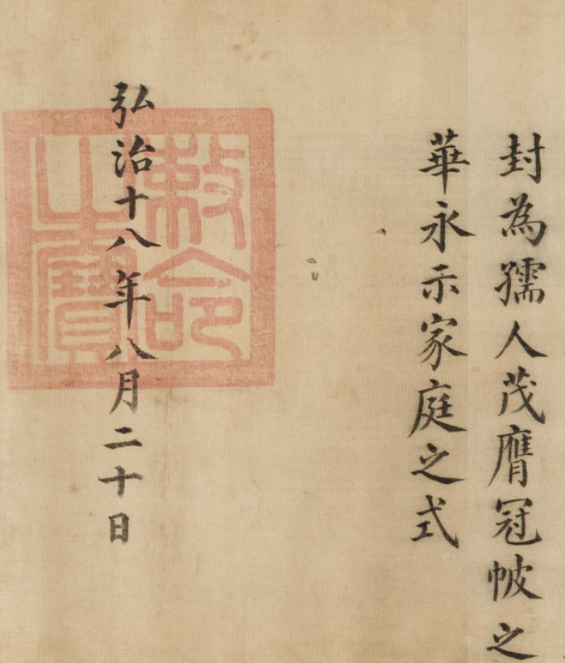 封為孺人茂膺冠帔之
華永示家庭之式
弘治十八年八月二十日
敕命
之寶